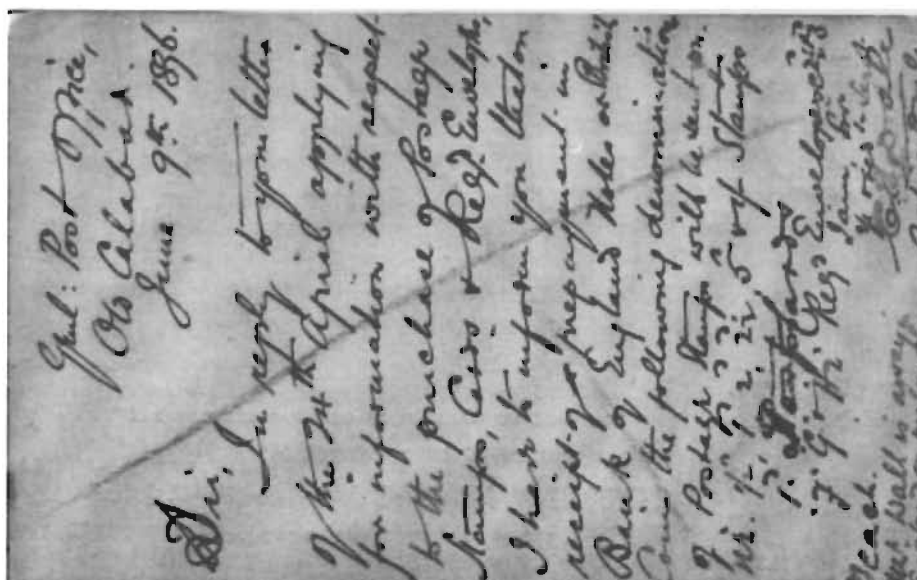 Gnl: Post Office,
Old Calabar.
June 9th 1896.
Sir,
In reply to your letter
of the 24th April applying
for information with respect
to the purchase of Postage
Stamps, Cards & Reg? Envelopes,
I have to inform you that on
receipt of prepayment in
Bank of England Notes or British
Coin the following denomination
of Postage Stamps will be sent on
viz. ½, 1, 2, 2½, 5 & 1/- Stamps
1, Postcards
F. G. & H. Reg? Envelopes
I am, Sir,
each.
Wall is away